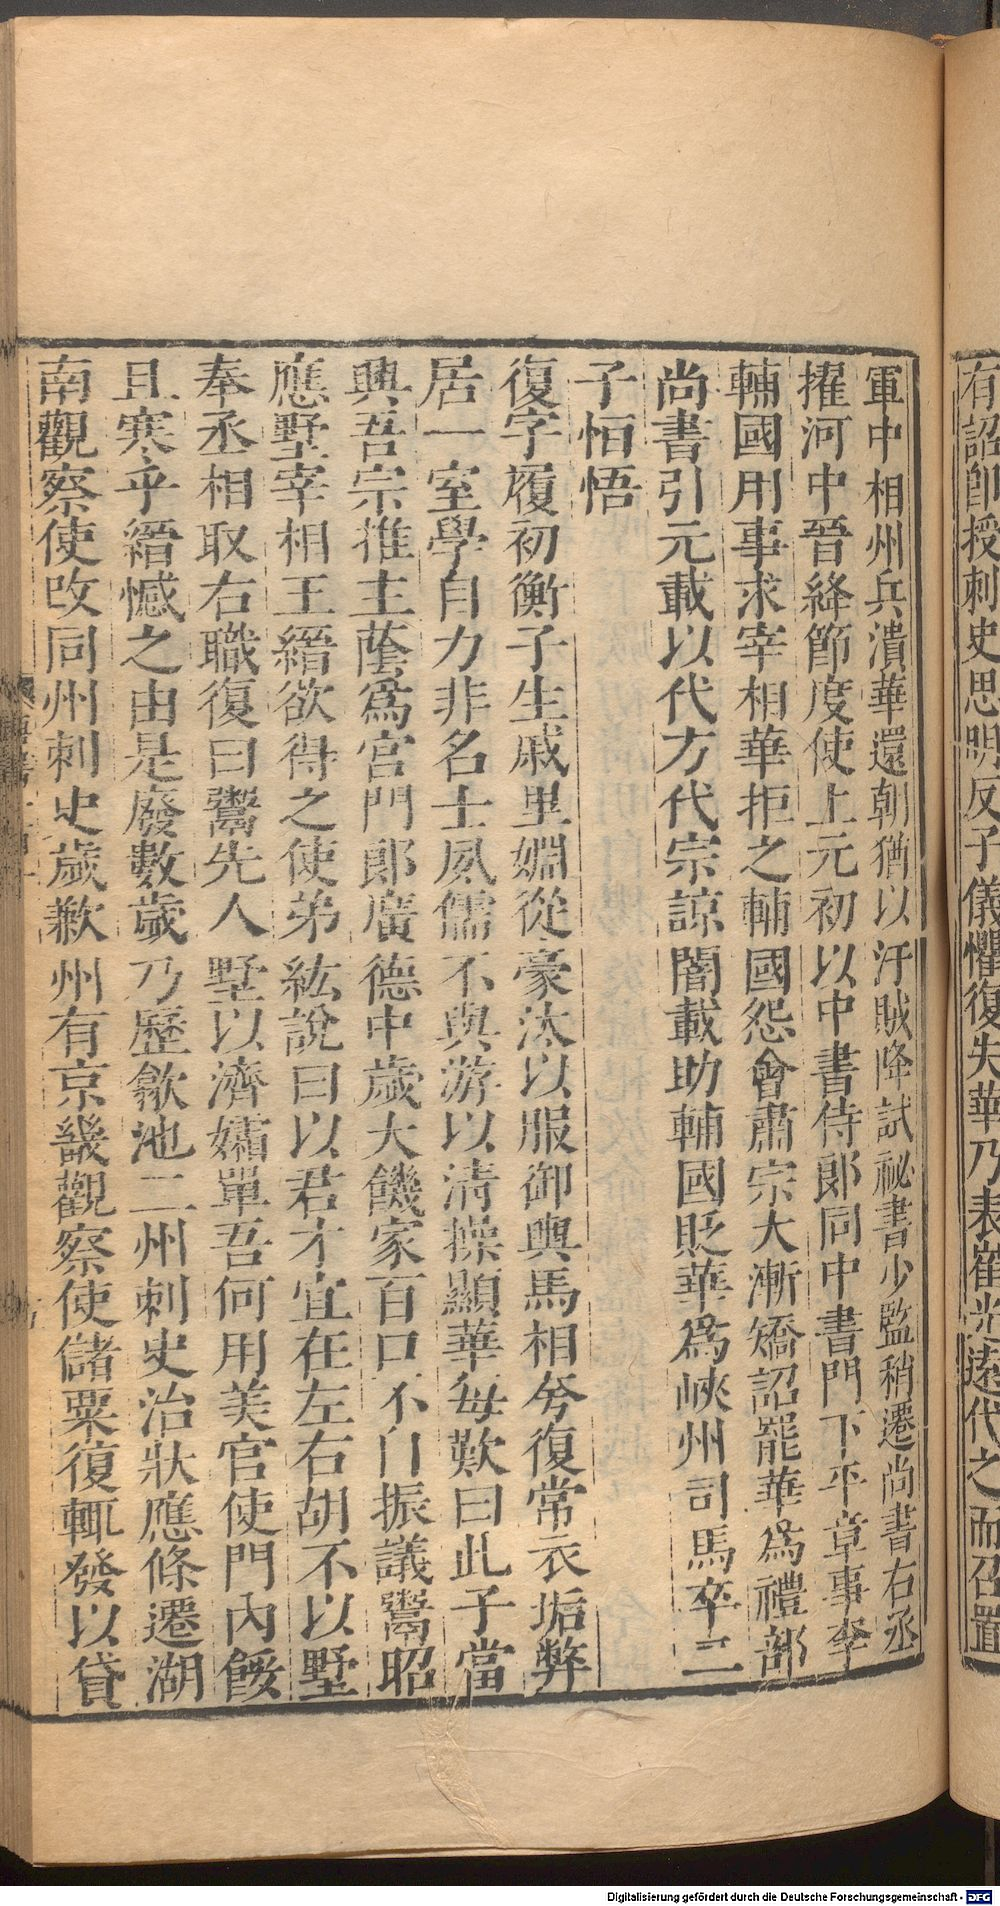 有詔卽授刺史思明反子儀懼復失華乃表崔光遠代之而召置
軍中相州兵潰華還朝猶以汙賊降試祕書少監稍遷尚書右丞
擢河中晉絳節度使上元初以中書侍郎同中書門下平章事李
輔國用事求宰相華拒之輔國怨會肅宗大漸矯詔罷華爲禮部
尚書引元載以代方代宗諒闇載助輔國貶華爲峽州司馬卒二
子恒悟
復字履初衡子生戚里姻從豪汰以服御輿馬相夸復常衣垢弊
居一室學自力非名士夙儒不與游以清操顯華每歎曰此子當
興吾宗推主蔭爲宮門郎廣德中歲大饑家百口不自振議鬻昭
應墅宰相王縉欲得之使弟紘說曰以君才宜在左右胡不以墅
奉丞相取右職復曰鬻先人墅以濟孀單吾何用美官使門內餒
且寒乎縉憾之由是廢數歲乃歷歙池二州刺史治狀應條遷湖
南觀察使改同州刺史歲歉州有京畿觀察使儲粟復輒發以貸
Digitalisierung gefördert durch die Deutsche Forschungsgemeinschaft - DFG